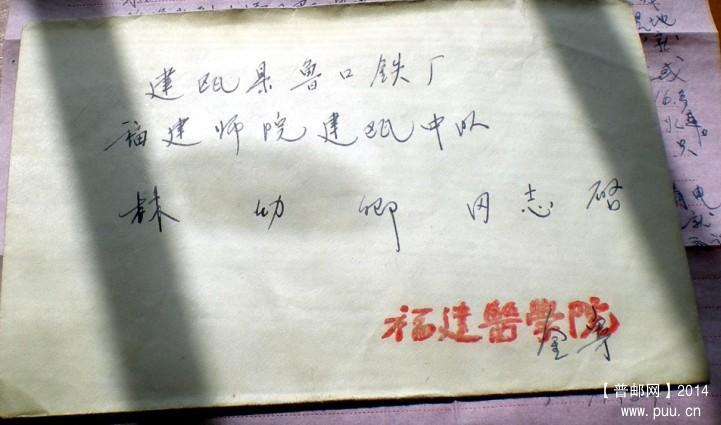 建瓯县鲁口铁厂
福建师院建瓯中队
林幼卿同志启
福建醫學院
【普邮网】2014
www.puu.cn